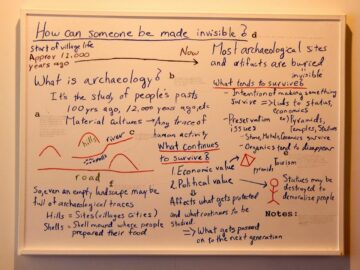 How can someone be made invisible?
Start of village life
Approx 12,000
years ago
Now
What is archaeology?
b
It's the study of people's pasts
100 yrs ago, 12,000 years ago, etc
a
Material cultures → Any trace of
human activity
c
hills
river
mounds
road
So, even an empty landscape may be
full of archaeological traces
Hills = Sites (villages cities)
Shells = Shell mound where people
prepared their food
What continues
to survive?
1. Economic value
2. Political value
Affects what gets protected
and what continues to be
studied.
⇒ What gets
passed on to the next generation
d
Most archaeological sites
and artifacts are buried
invisible
What tends to survive?
- Intention of making something
survive ⇒ Links to status,
economics
- Preservation ex) Pyramids,
issues temples, Statues
- Stone, Metal, Ceramics survive
- Organics tend to disappear
Tourism
pyramids
Statues may be
destroyed to
demoralize people
Notes: